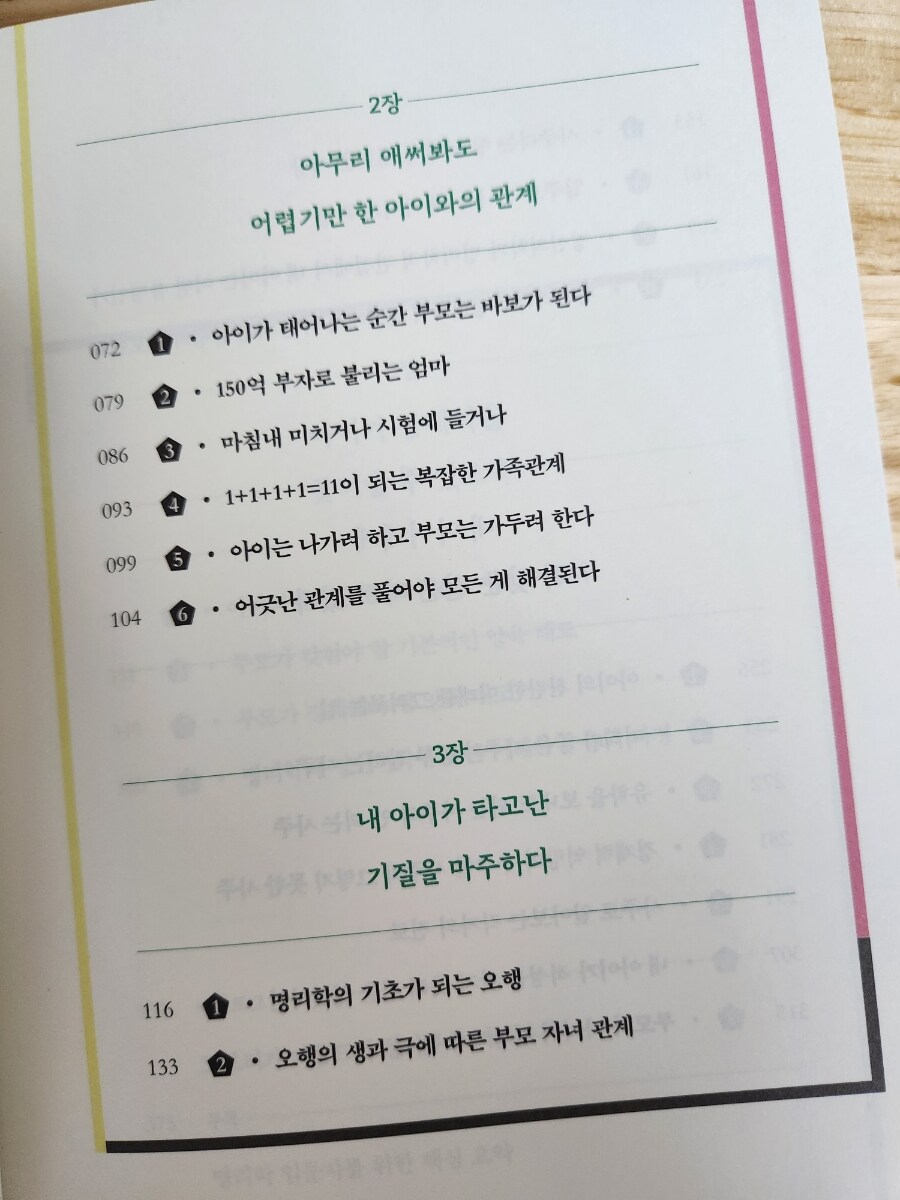 2장
아무리 애써봐도
어렵기만 한 아이와의 관계
072 1 • 아이가 태어나는 순간 부모는 바보가 된다
079 2 • 150억 부자로 불리는 엄마
086 3 • 마침내 미치거나 시험에 들거나
093 4 • 1+1+1+1=11이 되는 복잡한 가족관계
099 5 • 아이는 나가려 하고 부모는 가두려 한다
104 6 • 어긋난 관계를 풀어야 모든 게 해결된다
3장
내 아이가 타고난
기질을 마주하다
116 1 • 명리학의 기초가 되는 오행
133 2 • 오행의 생과 극에 따른 부모 자녀 관계